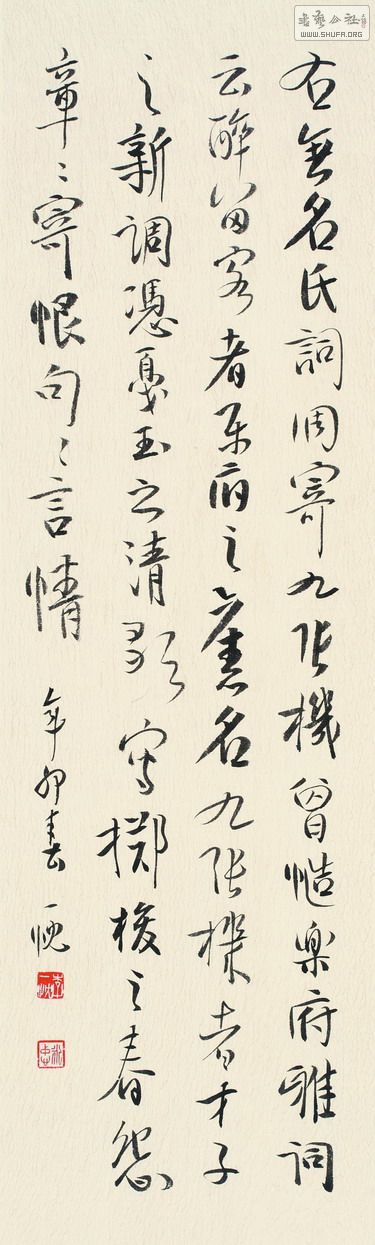 書藝公社
WWW.SHUFA.ORG
右無名氏詞調寄九張機曾慥樂府雅詞
云醉留客者樂府之舊名九張機者才子
之新調憑戛玉之清歌寫擲梭之春怨
章〻寄恨句〻言情
辛卯春一忱